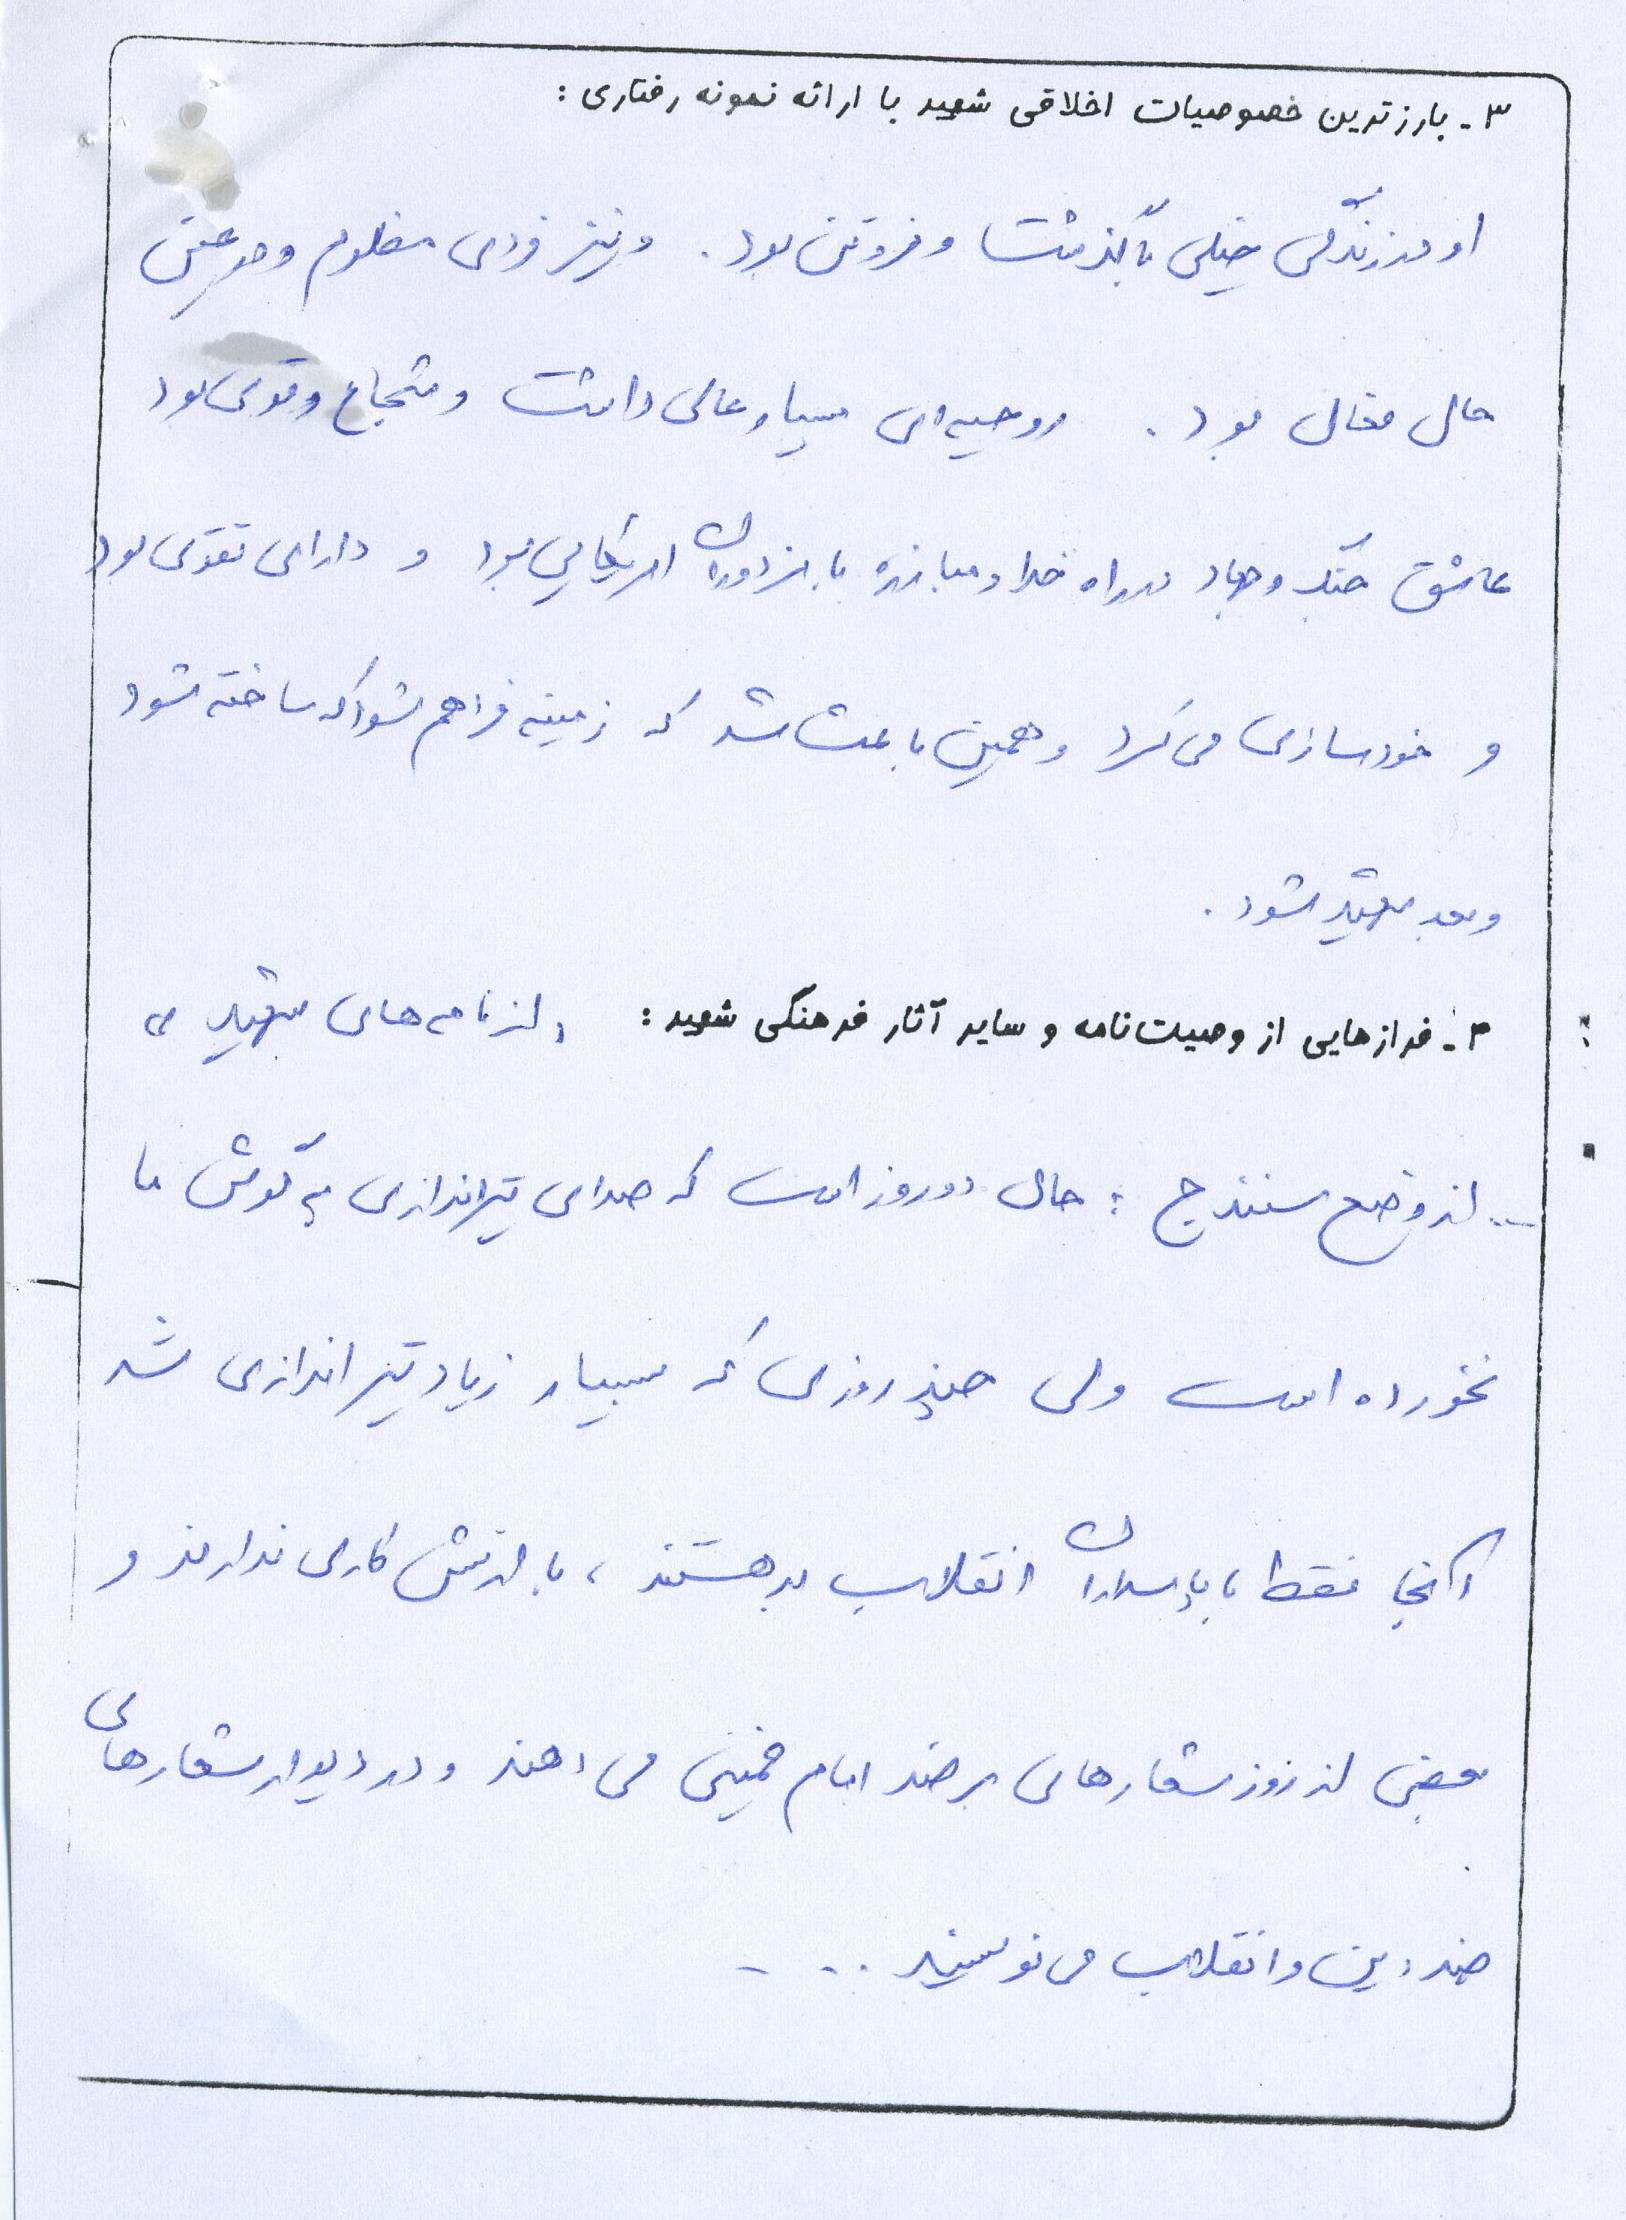 ۳ـ بارزترین خصوصیات اخلاقی شهید با ارائه نمونه رفتاری :
او در زندگی خیلی با گذشت و فروتن بود. و نیز فردی مظلوم و در عین
حال فعال بود. روحیه‌ای بسیار عالی داشت و شجاع و قوی بود
عاشق جنگ و جهاد در راه خدا و مبارزه با مزدوران امریکایی بود و دارای تقوی بود
و خودسازی می‌کرد و همین باعث شد که زمینه فراهم شود که ساخته شود
و بعد شهید شود.
۴ـ فرازهایی از وصیت‌نامه و سایر آثار فرهنگی شهید : از نامه‌های شهید
... از وضع سنندج : حال دو روز است که صدای تیراندازی به گوش ما
نخورده است ولی چند روزی که بسیار زیاد تیراندازی شد
اینجا فقط با پاسداران انقلاب بد هستند، با ارتش کاری ندارند و
بعضی از روز شعارهای بر ضد امام خمینی می‌دهند و در دیوار شعارهای
ضد دین و انقلاب می‌نویسند ....